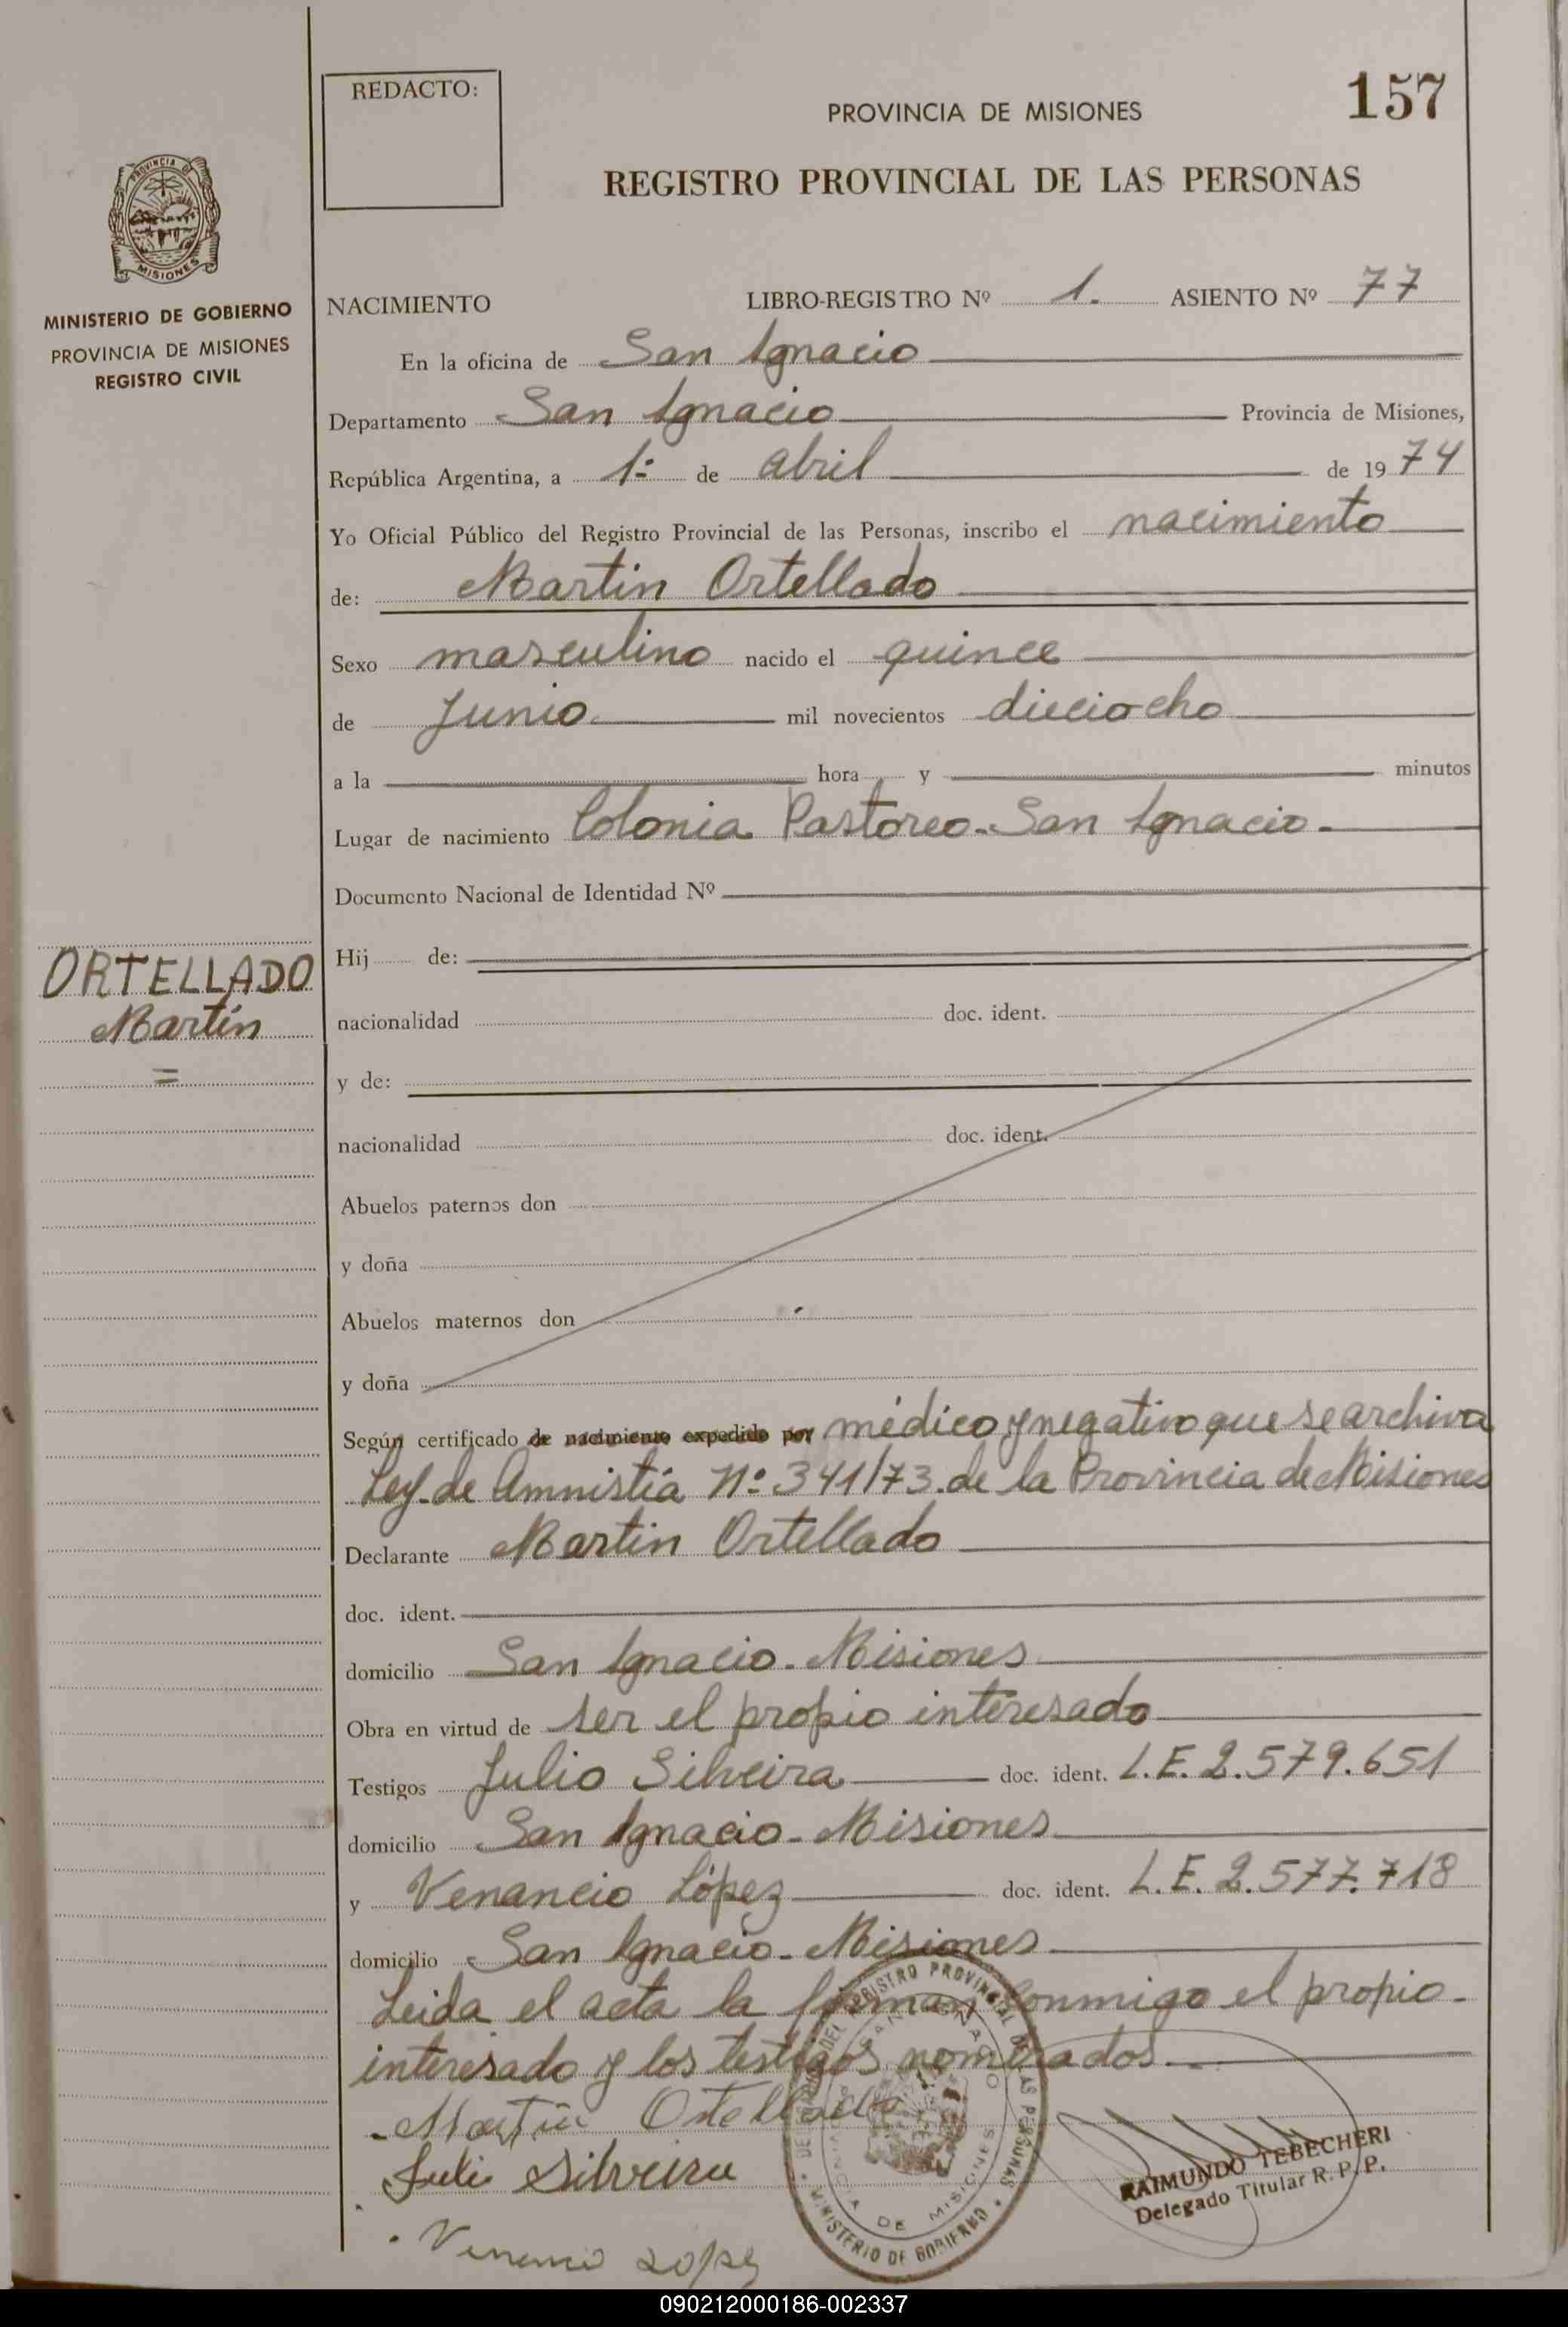 REDACTO:
157
PROVINCIA DE MISIONES
REGISTRO PROVINCIAL DE LAS PERSONAS
PROVINCIA DE
MISIONES
MINISTERIO DE GOBIERNO
PROVINCIA DE MISIONES
REGISTRO CIVIL
NACIMIENTO LIBRO-REGISTRO Nº 1. ASIENTO Nº 77
En la oficina de San Ignacio
Departamento San Ignacio Provincia de Misiones,
República Argentina, a 1º de abril de 19 74
Yo Oficial Público del Registro Provincial de las Personas, inscribo el nacimiento
de: Martin Ortellado
Sexo masculino nacido el quince
de Junio. mil novecientos dieciocho
a la hora y minutos
Lugar de nacimiento Colonia Pastoreo - San Ignacio.
Documento Nacional de Identidad Nº
ORTELLADO
Martín
=
Hij de:
nacionalidad doc. ident.
y de:
nacionalidad doc. ident.
Abuelos paternos don
y doña
Abuelos maternos don
y doña
Según certificado de nacimiento expedido por médico y negativo que se archiva
Ley de Amnistía Nº 341/73. de la Provincia de Misiones
Declarante Martin Ortellado
doc. ident.
domicilio San Ignacio - Misiones
Obra en virtud de ser el propio interesado
Testigos Julio Silveira doc. ident. L.E. 2.579.651
domicilio San Ignacio - Misiones
y Venancio López doc. ident. L.E. 2.577.718
domicilio San Ignacio - Misiones
Leida el acta la firman conmigo el propio
interesado y los testigos nombrados.
Martin Ortellado
Julio Silveira
Venancio Lopez
DEL REGISTRO PROVINCIAL DE LAS PERSONAS
MINISTERIO DE GOBIERNO
SAN IGNACIO
PROVINCIA DE MISIONES
RAIMUNDO TEBECHERI
Delegado Titular R. P. P.
090212000186-002337